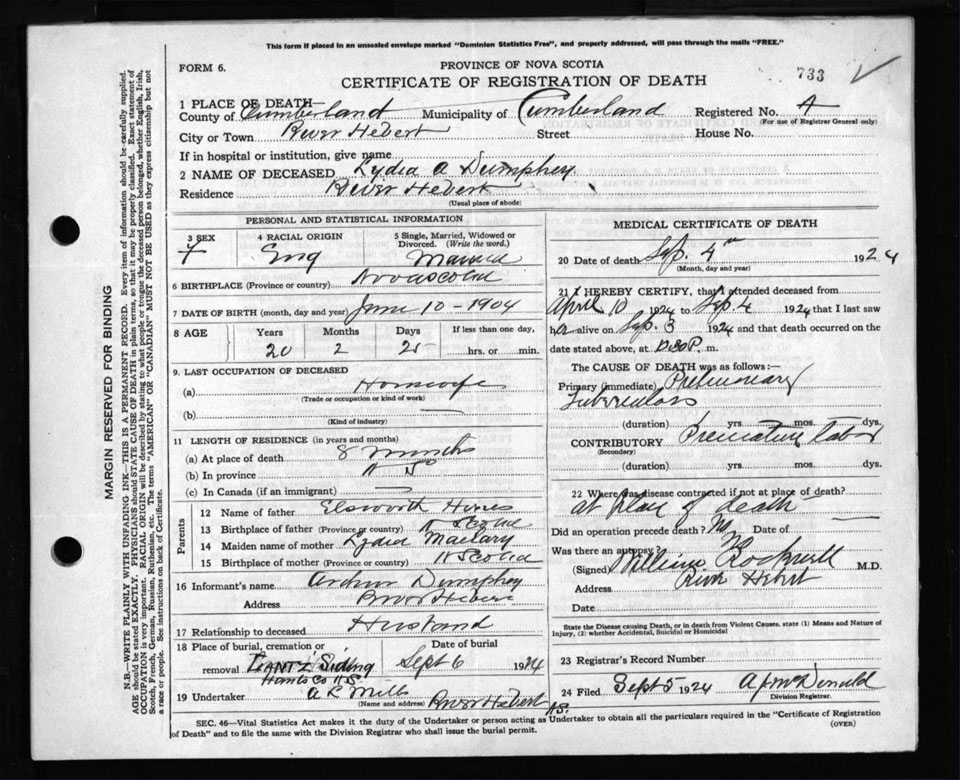 This form if placed in an unsealed envelope marked "Dominion Statistics Free", and properly addressed, will pass through the mails "FREE."
FORM 6.
PROVINCE OF NOVA SCOTIA
CERTIFICATE OF REGISTRATION OF DEATH
733
1 PLACE OF DEATH—
County of Cumberland Municipality of Cumberland Registered No. A
(For use of Registrar General only)
City or Town River Hebert Street House No.
If in hospital or institution, give name
2 NAME OF DECEASED Lydia A Dumphey
Residence River Hebert
(Usual place of abode)
PERSONAL AND STATISTICAL INFORMATION
3 SEX 4 RACIAL ORIGIN 5 Single, Married, Widowed or
Divorced. (Write the word.)
F Eng Married
6 BIRTHPLACE (Province or country) Nova Scotia
7 DATE OF BIRTH (month, day and year) June 10 - 1904
8 AGE Years Months Days If less than one day,
20 2 25 hrs. or min.
9. LAST OCCUPATION OF DECEASED
(a) Housewife
(Trade or occupation or kind of work)
(b) —
(Kind of industry)
11 LENGTH OF RESIDENCE (in years and months)
(a) At place of death 8 Months
(b) In province N S
(c) In Canada (if an immigrant) —
Parents
12 Name of father Elsworth
13 Birthplace of father (Province or country) N Scotia
14 Maiden name of mother Lydia
15 Birthplace of mother (Province or country) N Scotia
16 Informant's name Arthur Dumphey
Address River Hebert
17 Relationship to deceased Husband
18 Place of burial, cremation or Date of burial
removal LANTZ Siding Sept 6 1924
Hants Co N.S.
19 Undertaker A R Mills River Hebert
(Name and address) N.S.
MEDICAL CERTIFICATE OF DEATH
20 Date of death Sep. 4th 1924
(Month, day and year)
21 I HEREBY CERTIFY, that I attended deceased from
April 10 1924 to Sep. 4 1924 that I last saw
her alive on Sep. 3 1924 and that death occurred on the
date stated above, at P. m.
The CAUSE OF DEATH was as follows:—
Primary (immediate) Pulmonary
Tuberculosis
(duration) yrs. mos. dys.
CONTRIBUTORY Premature labor
(Secondary)
(duration) yrs. mos. dys.
22 Where was disease contracted if not at place of death?
at place of death
Did an operation precede death? No Date of —
Was there an autopsy? No
(Signed) William Rockwell M.D.
Address River Hebert
Date
State the Disease causing Death, or in death from Violent Causes, state (1) Means and Nature of
Injury, (2) whether Accidental, Suicidal or Homicidal
23 Registrar's Record Number
24 Filed Sept 5 1924 A J McDonald
Division Registrar.
SEC. 46—Vital Statistics Act makes it the duty of the Undertaker or person acting as Undertaker to obtain all the particulars required in the "Certificate of Registration
of Death" and to file the same with the Division Registrar who shall issue the burial permit.
(OVER)
MARGIN RESERVED FOR BINDING
N.B.—WRITE PLAINLY WITH UNFADING INK—THIS IS A PERMANENT RECORD. Every item of information should be carefully supplied.
AGE should be stated EXACTLY. PHYSICIANS should STATE CAUSE OF DEATH in plain terms, so that it may be properly classified. Exact statement of
OCCUPATION is very important. RACIAL ORIGIN will be described by stating to what people or tongue the deceased person belonged, whether English, Irish,
Scotch, French, German, Russian, Ruthenian, etc. The terms "AMERICAN" OR "CANADIAN" MUST NOT BE USED as they express citizenship but not
a race or people. See instructions on back of Certificate.